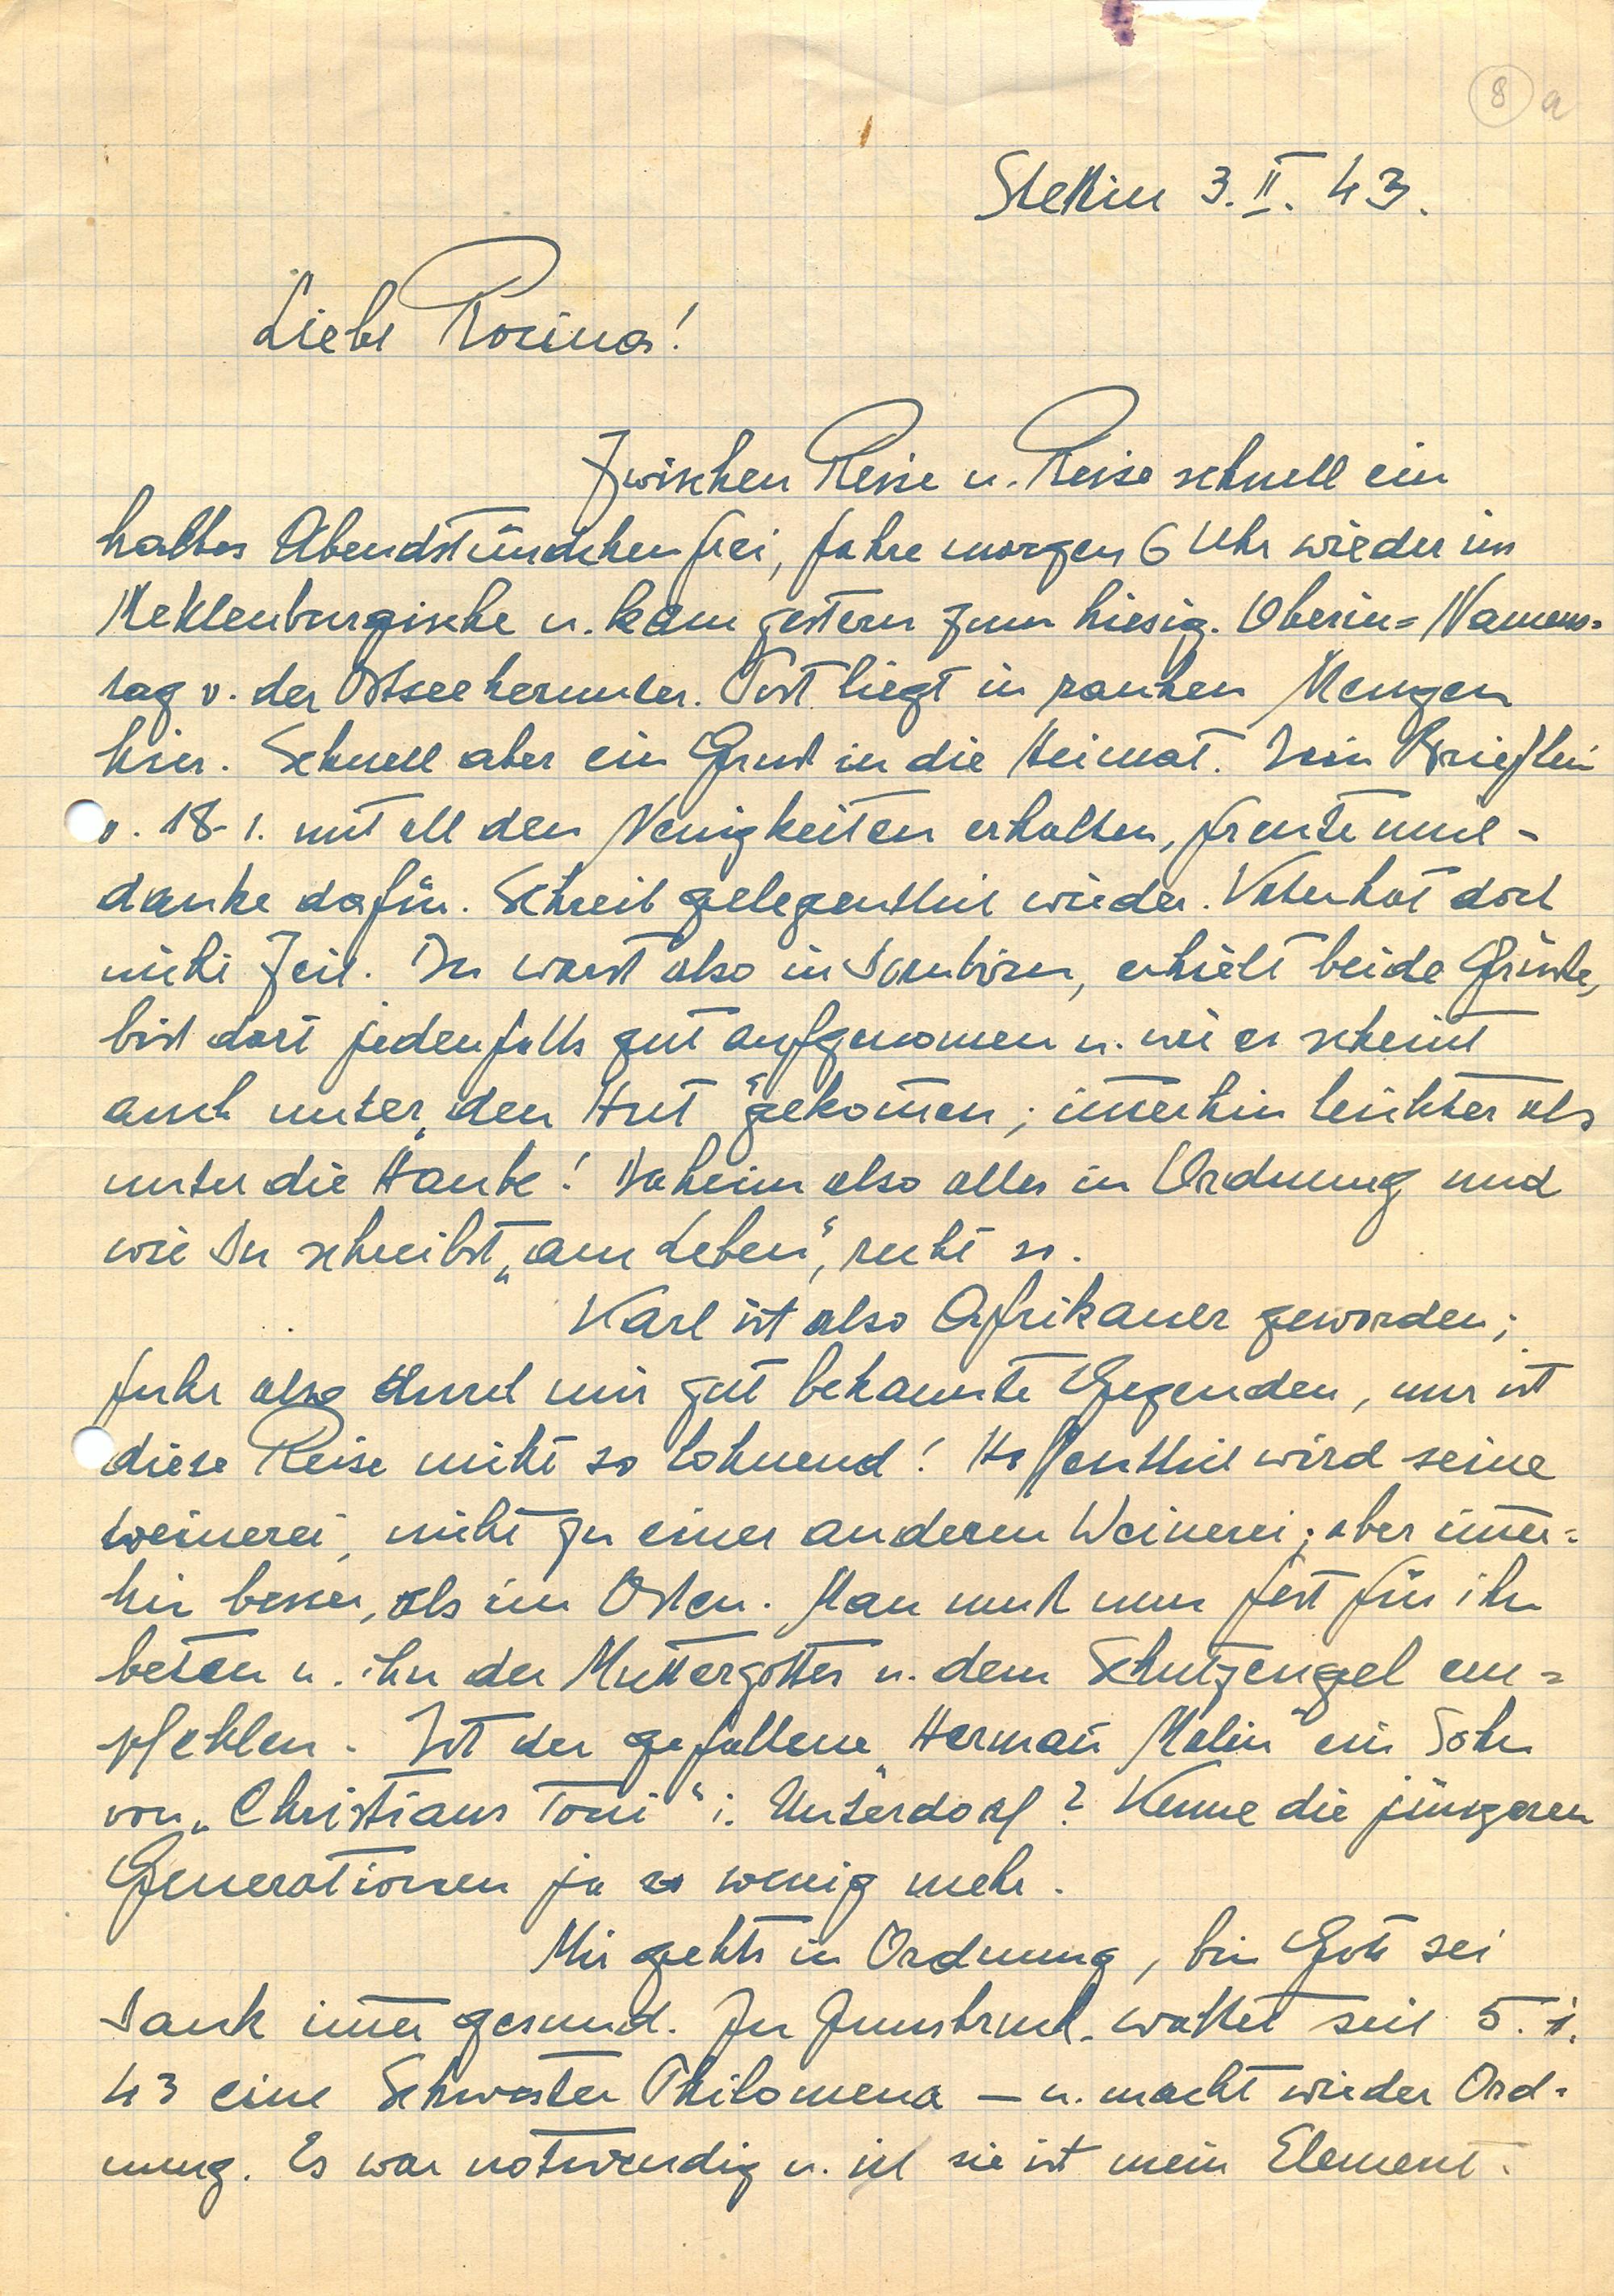 8 a
Stettin 3. II. 43.
Liebe Rosina!
Zwischen Reise u. Reise schnell ein
halbes Abendstündchen frei, fahre morgen 6 Uhr wieder ins
Meklenburgische u. kam gestern zum hiesig. Oberin= Namens=
tag v. der Ostsee herunter. Post liegt in rauhen Mengen
hier. Schnell aber ein Gruß in die Heimat. Dein Brieflein
v. 18. 1. mit all den Neuigkeiten erhalten, freute mich -
danke dafür. Schreib gelegentlich wieder. Vater hat doch
nicht Zeit. Du warst also in Dornbirn, erhielt beide Grüße,
bist dort jedenfalls gut aufgenomen u. wie es scheint
auch unter „den Hut“ gekom̄en; im̄erhin leichter als
unter die Haube! Daheim also alles in Ordnung und
wie Du schreibst „am Leben“, recht so.
Karl ist also Afrikaner geworden;
fuhr also durch mir gut bekannte Gegenden, nur ist
diese Reise nicht so lohnend! Hoffentlich wird seine
weinerei, nicht zu einer anderen Weinerei; aber im̄er=
hin besser, als im Osten. Man muß nun fest für ihn
beten u. ihn der Muttergottes u. dem Schutzengel em=
pfehlen. Ist der gefallene „Herman̄ Malin“ ein Sohn
von „Christians Toni“ i. Unterdorf? Kenne die jüngeren
Generationen ja so wenig mehr.
Mir gehts in Ordnung, bin Gott sei
Dank im̄er gesund. In Innsbruck waltet seit 5. 1.
43 eine Schwester Philomena – u. macht wieder Ord=
nung. Es war notwendig u. sie ist mein Element.